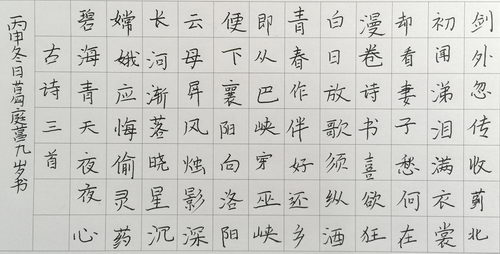 剑外忽传收蓟北
初闻涕泪满衣裳
却看妻子愁何在
漫卷诗书喜欲狂
白日放歌须纵酒
青春作伴好还乡
即从巴峡穿巫峡
便下襄阳向洛阳
云母屏风烛影深
长河渐落晓星沉
嫦娥应悔偷灵药
碧海青天夜夜心
古诗三首
丙申冬日葛庭萱九岁书